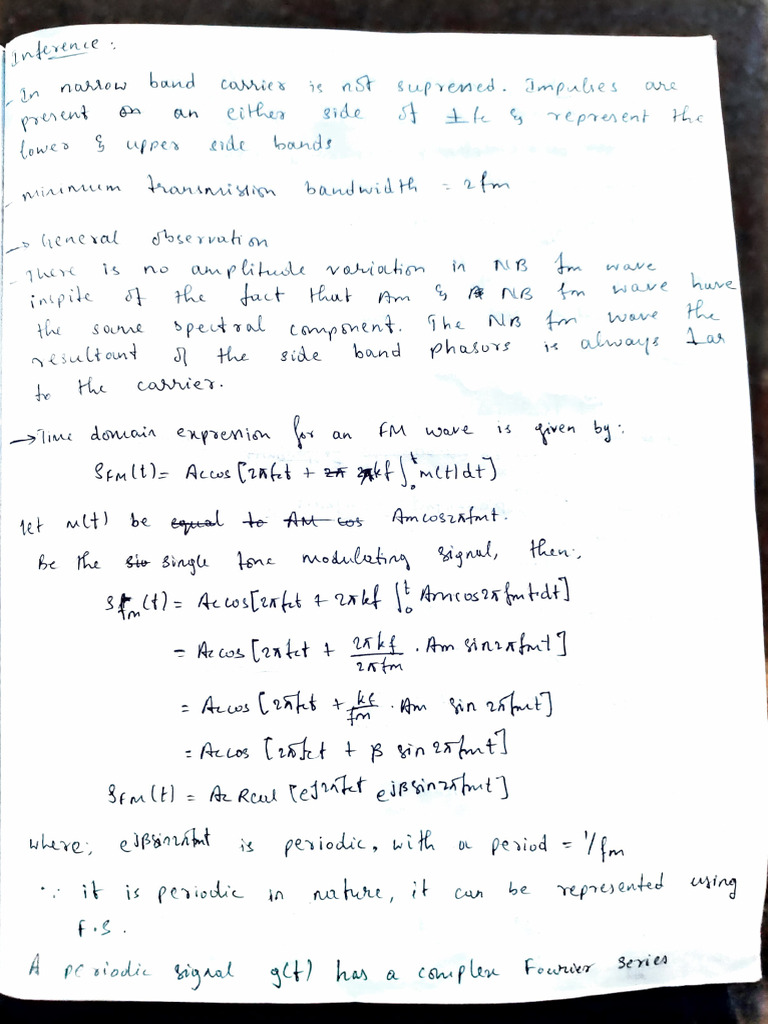 Inference :
- In narrow band carrier is not supressed. Impulses are
present on an either side of ±fc & represent the
lower & upper side bands
- minimum transmission bandwidth = 2fm
→ General observation
- There is no amplitude variation in NB fm wave
inspite of the fact that Am & NB fm wave have
the same spectral component. The NB fm wave the
resultant of the side band phasors is always ⊥ar
to the carrier.
→ Time domain expression for an FM wave is given by:
SFM(t) = Accos[2πfct + 2πkf ∫₀ᵗ m(t)dt]
let m(t) be equal to AM cos Amcos2πfmt.
Be the sin single tone modulating signal, then;
Sfm(t) = Accos[2πfct + 2πkf ∫₀ᵗ Amcos2πfmt.dt]
= Accos [2πfct + 2πkf/2πfm . Am sin2πfmt]
= Accos [2πfct + kf/fm . Am sin 2πfmt]
= Accos [2πfct + β sin 2πfmt]
SFM(t) = Ac Real [ej2πfct ejβsin2πfmt]
where; ejβsin2πfmt is periodic, with a period = 1/fm
∵ it is periodic in nature, it can be represented using
F.S.
A periodic signal g(t) has a complex Fourier series